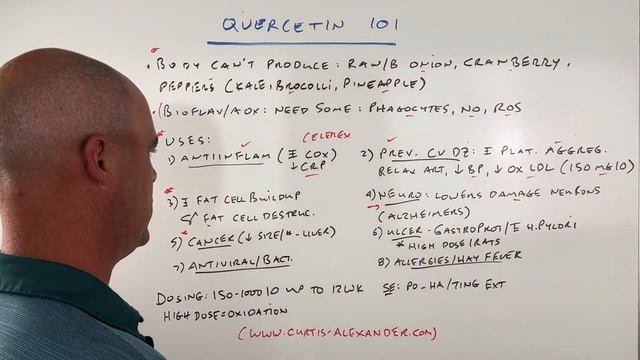 QUERCETIN 101
• BODY CAN'T PRODUCE: RAW/B ONION, CRANBERRY,
PEPPERS (KALE, BROCOLLI, PINEAPPLE)
• BIOFLAV/AOX: NEED SOME: PHAGOCYTES, NO, ROS
* USES: (CELEREX
1) ANTIINFLAM (I COX) ↓ CRP
2) PREV. CV DZ: I PLAT. AGGREG.
RELAX ART, ↓ BP, ↓ OX LDL (150 MG/D)
3) I FAT CELL BUILDUP
FAT CELL DESTRUC.
4) NEURO: LOWERS DAMAGE NEURONS
(ALZHEIMERS)
5) CANCER (↓ SIZE/# - LIVER)
6) ULCER - GASTROPROT/I H. PYLORI
* HIGH DOSE/RATS
7) ANTIVIRAL/BACT.
8) ALLERGIES/HAY FEVER
DOSING: 150-1000/D UP TO 12WK
HIGH DOSE = OXIDATION
SE: PO-HA/TING EXT
(WWW.CURTIS-ALEXANDER.COM)